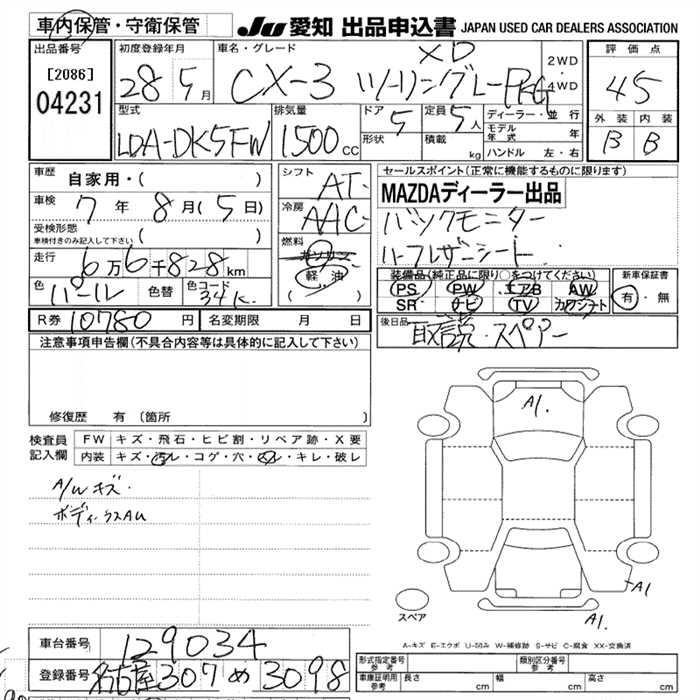 車内保管・守衛保管
JU 愛知 出品申込書 JAPAN USED CAR DEALERS ASSOCIATION
出品番号 [2086] 04231
初度登録年月 28 5月
車名・グレード XD CX-3 ツーリング Lーpkg
2WD ・ 4WD
評価点 45
外装 B 内装 B
型式 LDA-DK5FW
排気量 1500cc
ドア 5
形状
定員 5人
積載 kg
ディーラー・並行
モデル年式 年
ハンドル 左・右
車歴 自家用・( )
シフト AT
セールスポイント(正常に機能するものに限ります)
車検 7年 8月(5日)
冷房 AAC
MAZDAディーラー出品
受検形態 車検付きのみ記入して下さい ( )
バックモニター
走行 6万6千828km
燃料 ガソリン 軽油 ( )
ハーフレザーシート
色 パール 色替 色コード 34K
装備品(純正品に限り○をつけてください)
PS PW エアB AW
SR ナビ TV カワシート
新車保証書 有・無
R券 10780円 名変期限 月 日
後日品 取説・スペアー
注意事項申告欄(不具合内容等は具体的に記入して下さい)
修復歴 有(箇所 )
検査員記入欄
FW キズ・飛石・ヒビ割・リペア跡・X要
内装 キズ・汚レ・コゲ・穴・スレ・キレ・破レ
A/Wキズ
ボディウスAU
A1.
A1
A1.
スペア
A-キズ E-エクボ U-凹み W-補修跡 S-サビ C-腐食 XX-交換済
車台番号 129034
登録番号 名古屋307め3098
形式指定番号 参考
類別区分番号 参考
車庫証明用 参考 長さ cm 幅 cm 高さ cm